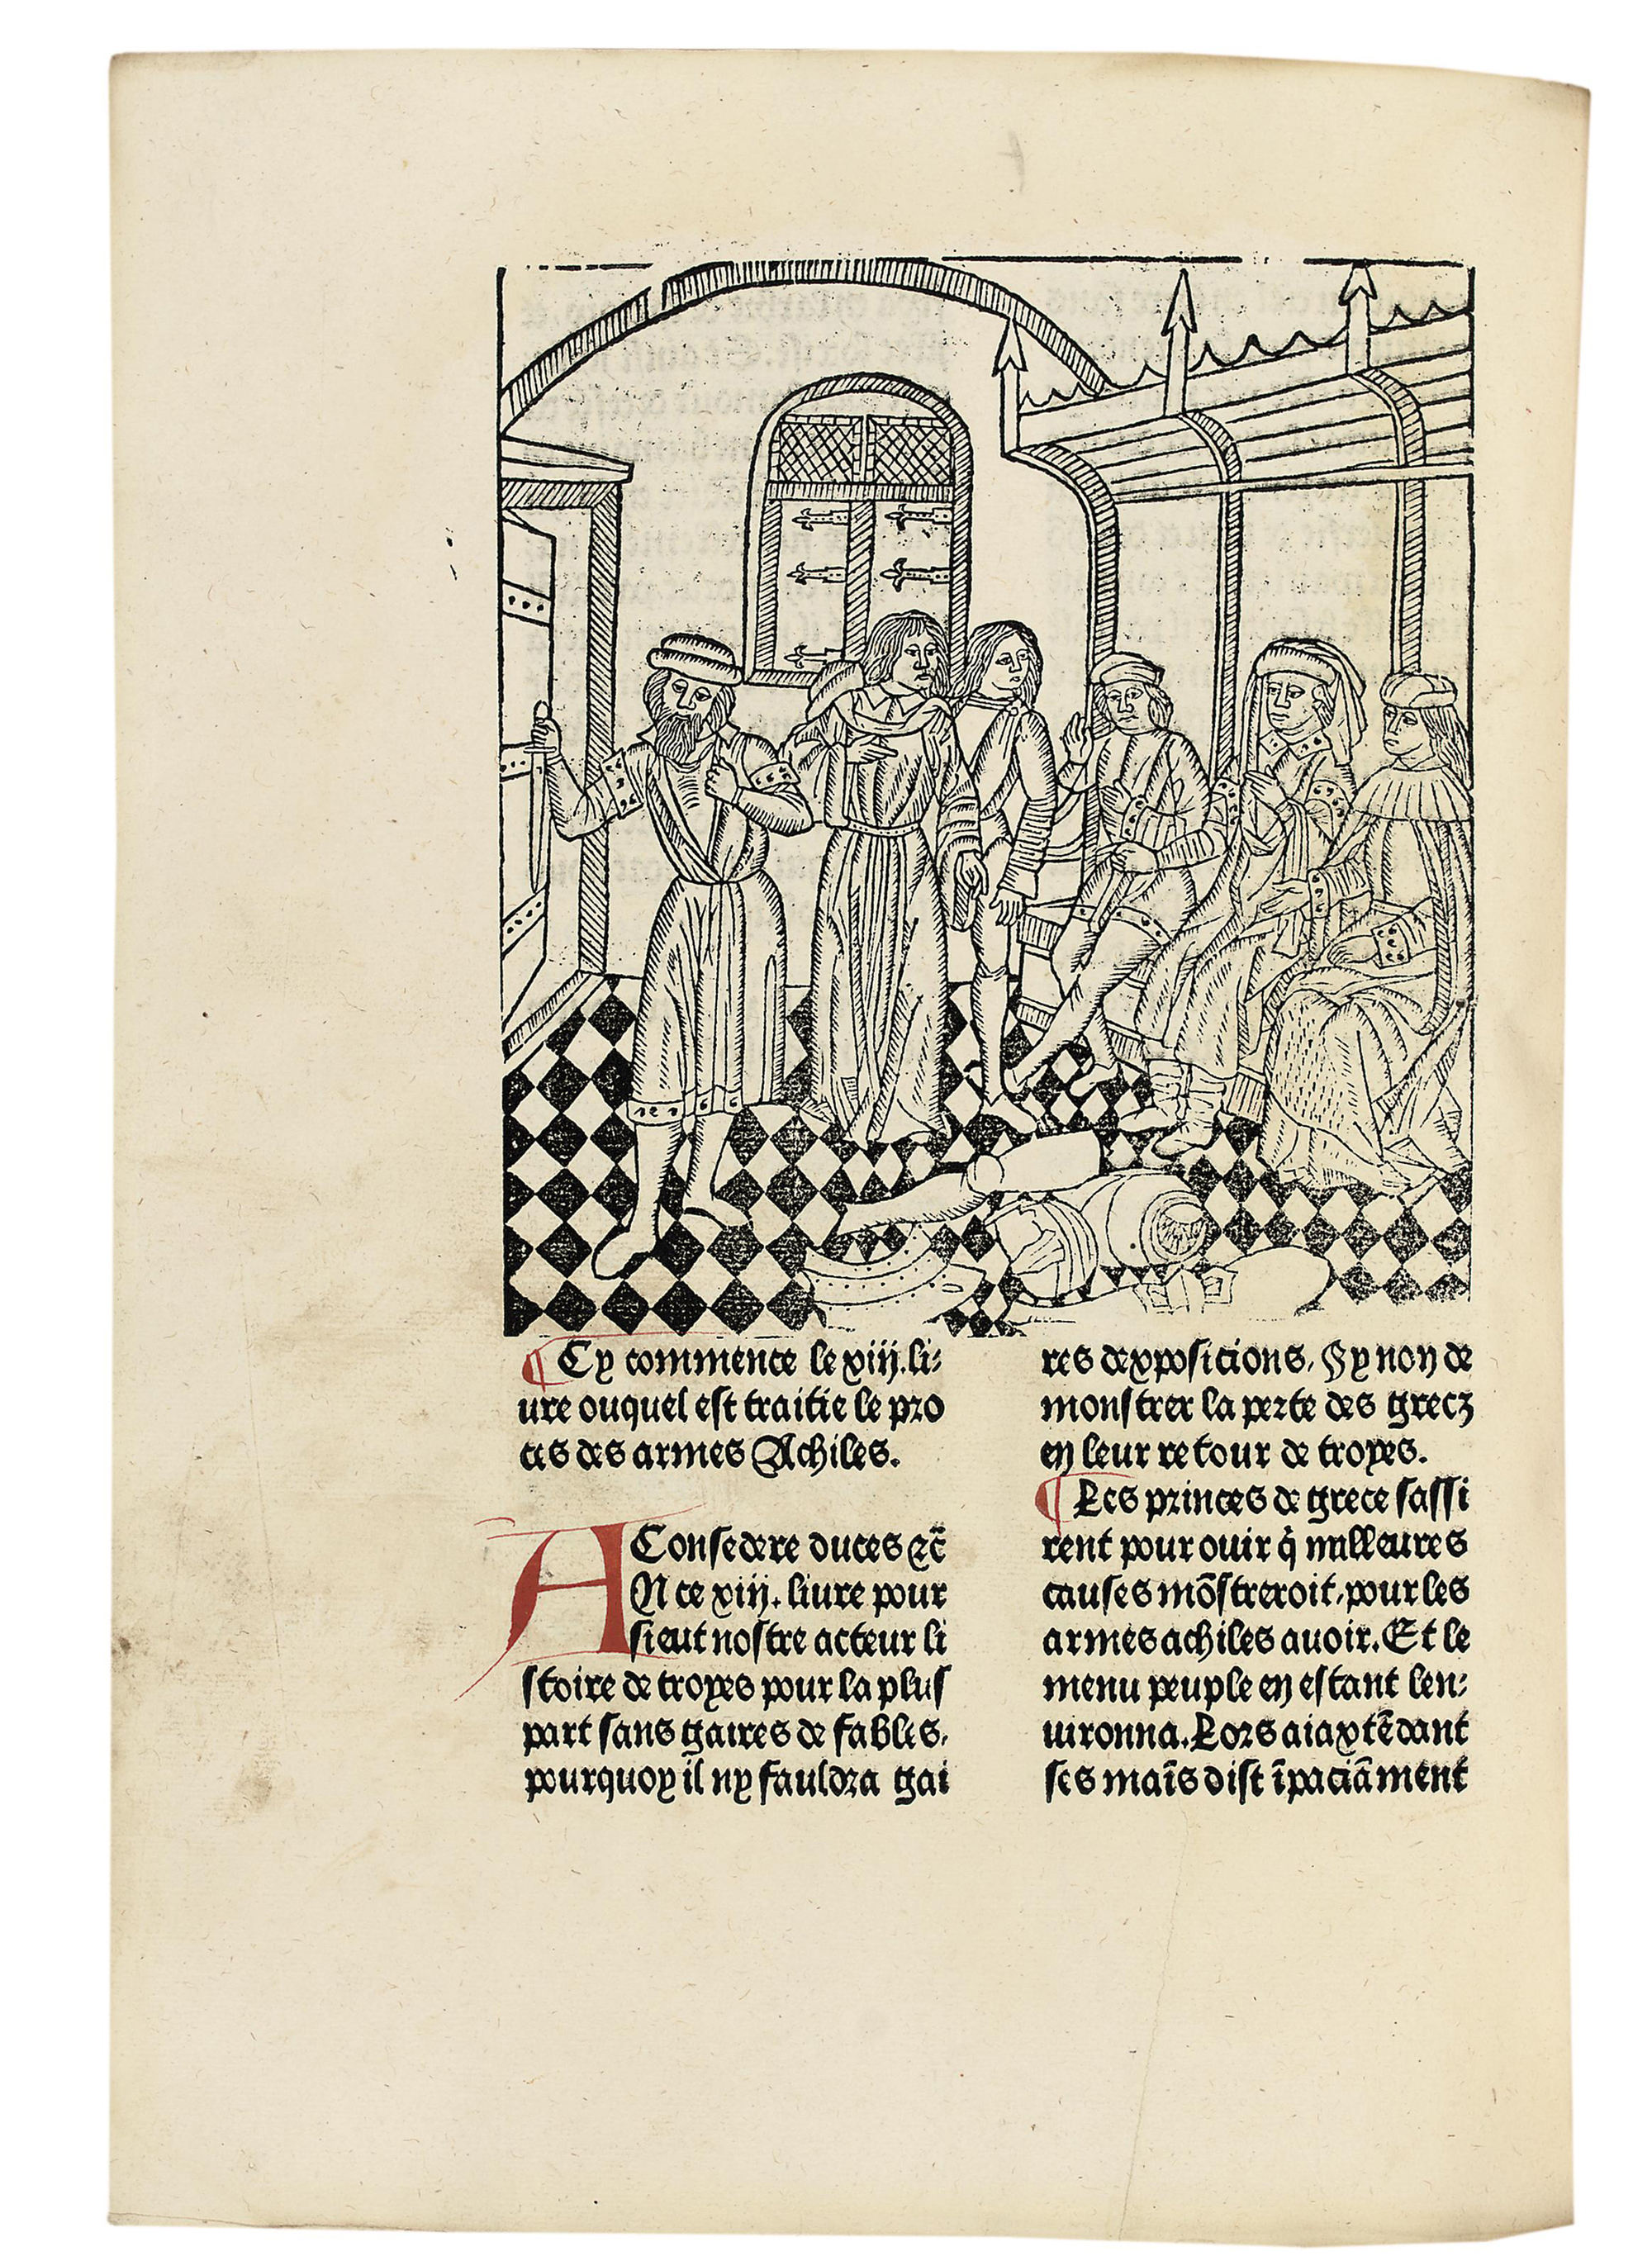 ¶ Cy commence le xiij. li⸗
ure ouquel est traitie le pro
ces des armes Achiles.
Consedere duces ⁊c̄
AN ce xiij. liure pour
sieut nostre acteur li
stoire de troyes pour la plus
part sans gaires de fables,
pourquoy il ny fauldra gai
res dexposicions, Sy non de
monstrer la perte des grecz
en leur retour de troyes.
¶ Les princes de grece sassi
rent pour ouir q̄ milleures
causes mōstreroit, pour les
armes achiles auoir. Et le
menu peuple en estant len⸗
uironna. Lors aiax tēdant
ses maīs dist īpaciāment